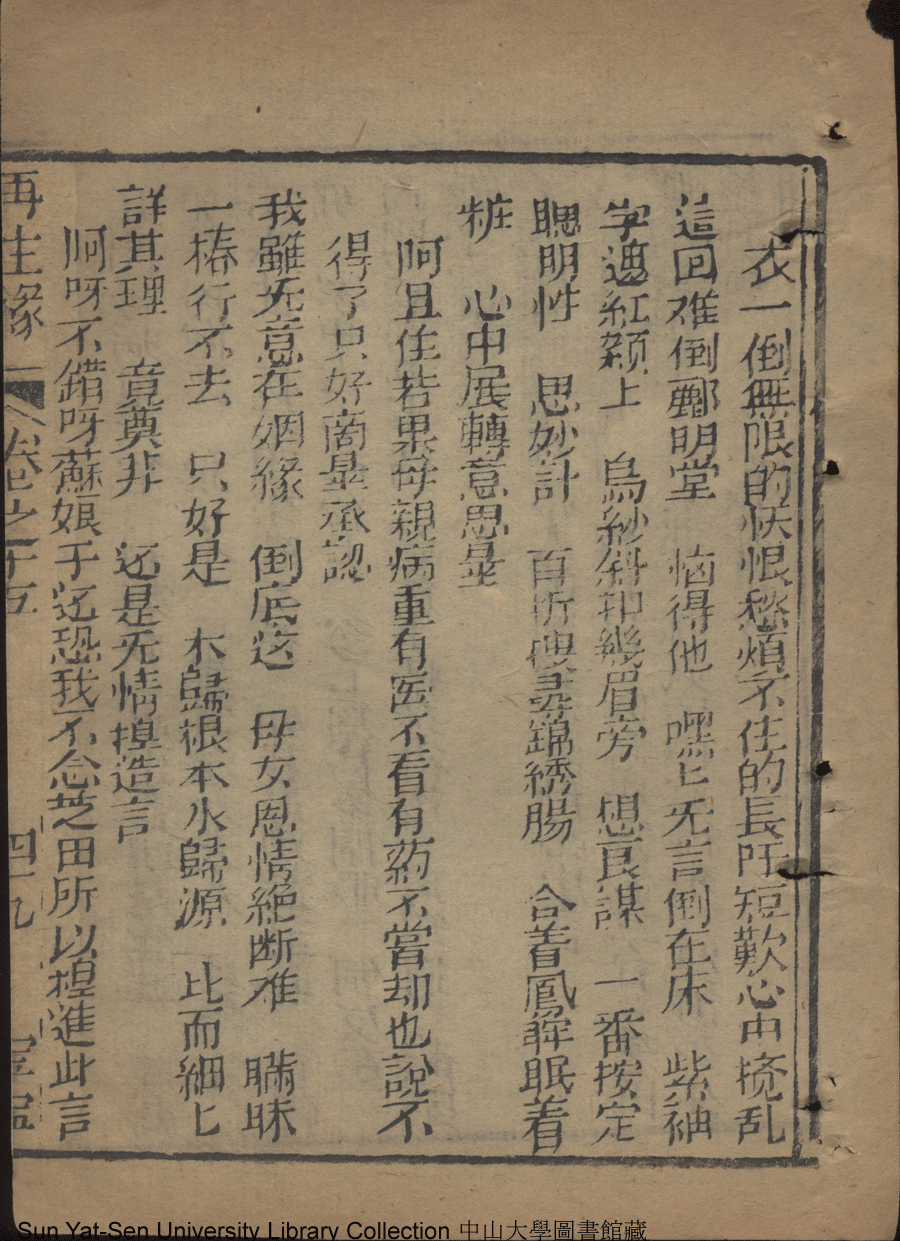 衣一倒無限的怏恨愁煩不住的長吁短歎心中撓乱
這回难倒酈明堂 惱得他 嘿匕无言倒在床 紫袖
半遮紅顏上 烏紗斜印幾眉旁 想良謀 一番按定
聰明性 思妙計 百折 錦綉腸 合着鳳眸眠着
粧 心中展轉意思量
阿且住若果母親病重有医不看有葯不嘗却也說不
得了只好商量承認
我雖无意在姻緣 倒底这 母女恩情絕断难 瞞昧
一樁行不去 只好是 木歸根本水歸源 比而細匕
詳其理 竟莫非 还是无情揑造言
阿呀不錯呀蘇娘子还恐我不念芝田所以揑進此言
再生緣 卷之十五 四十九
Sun Yat-Sen University Library Collection 中山大學圖書館藏